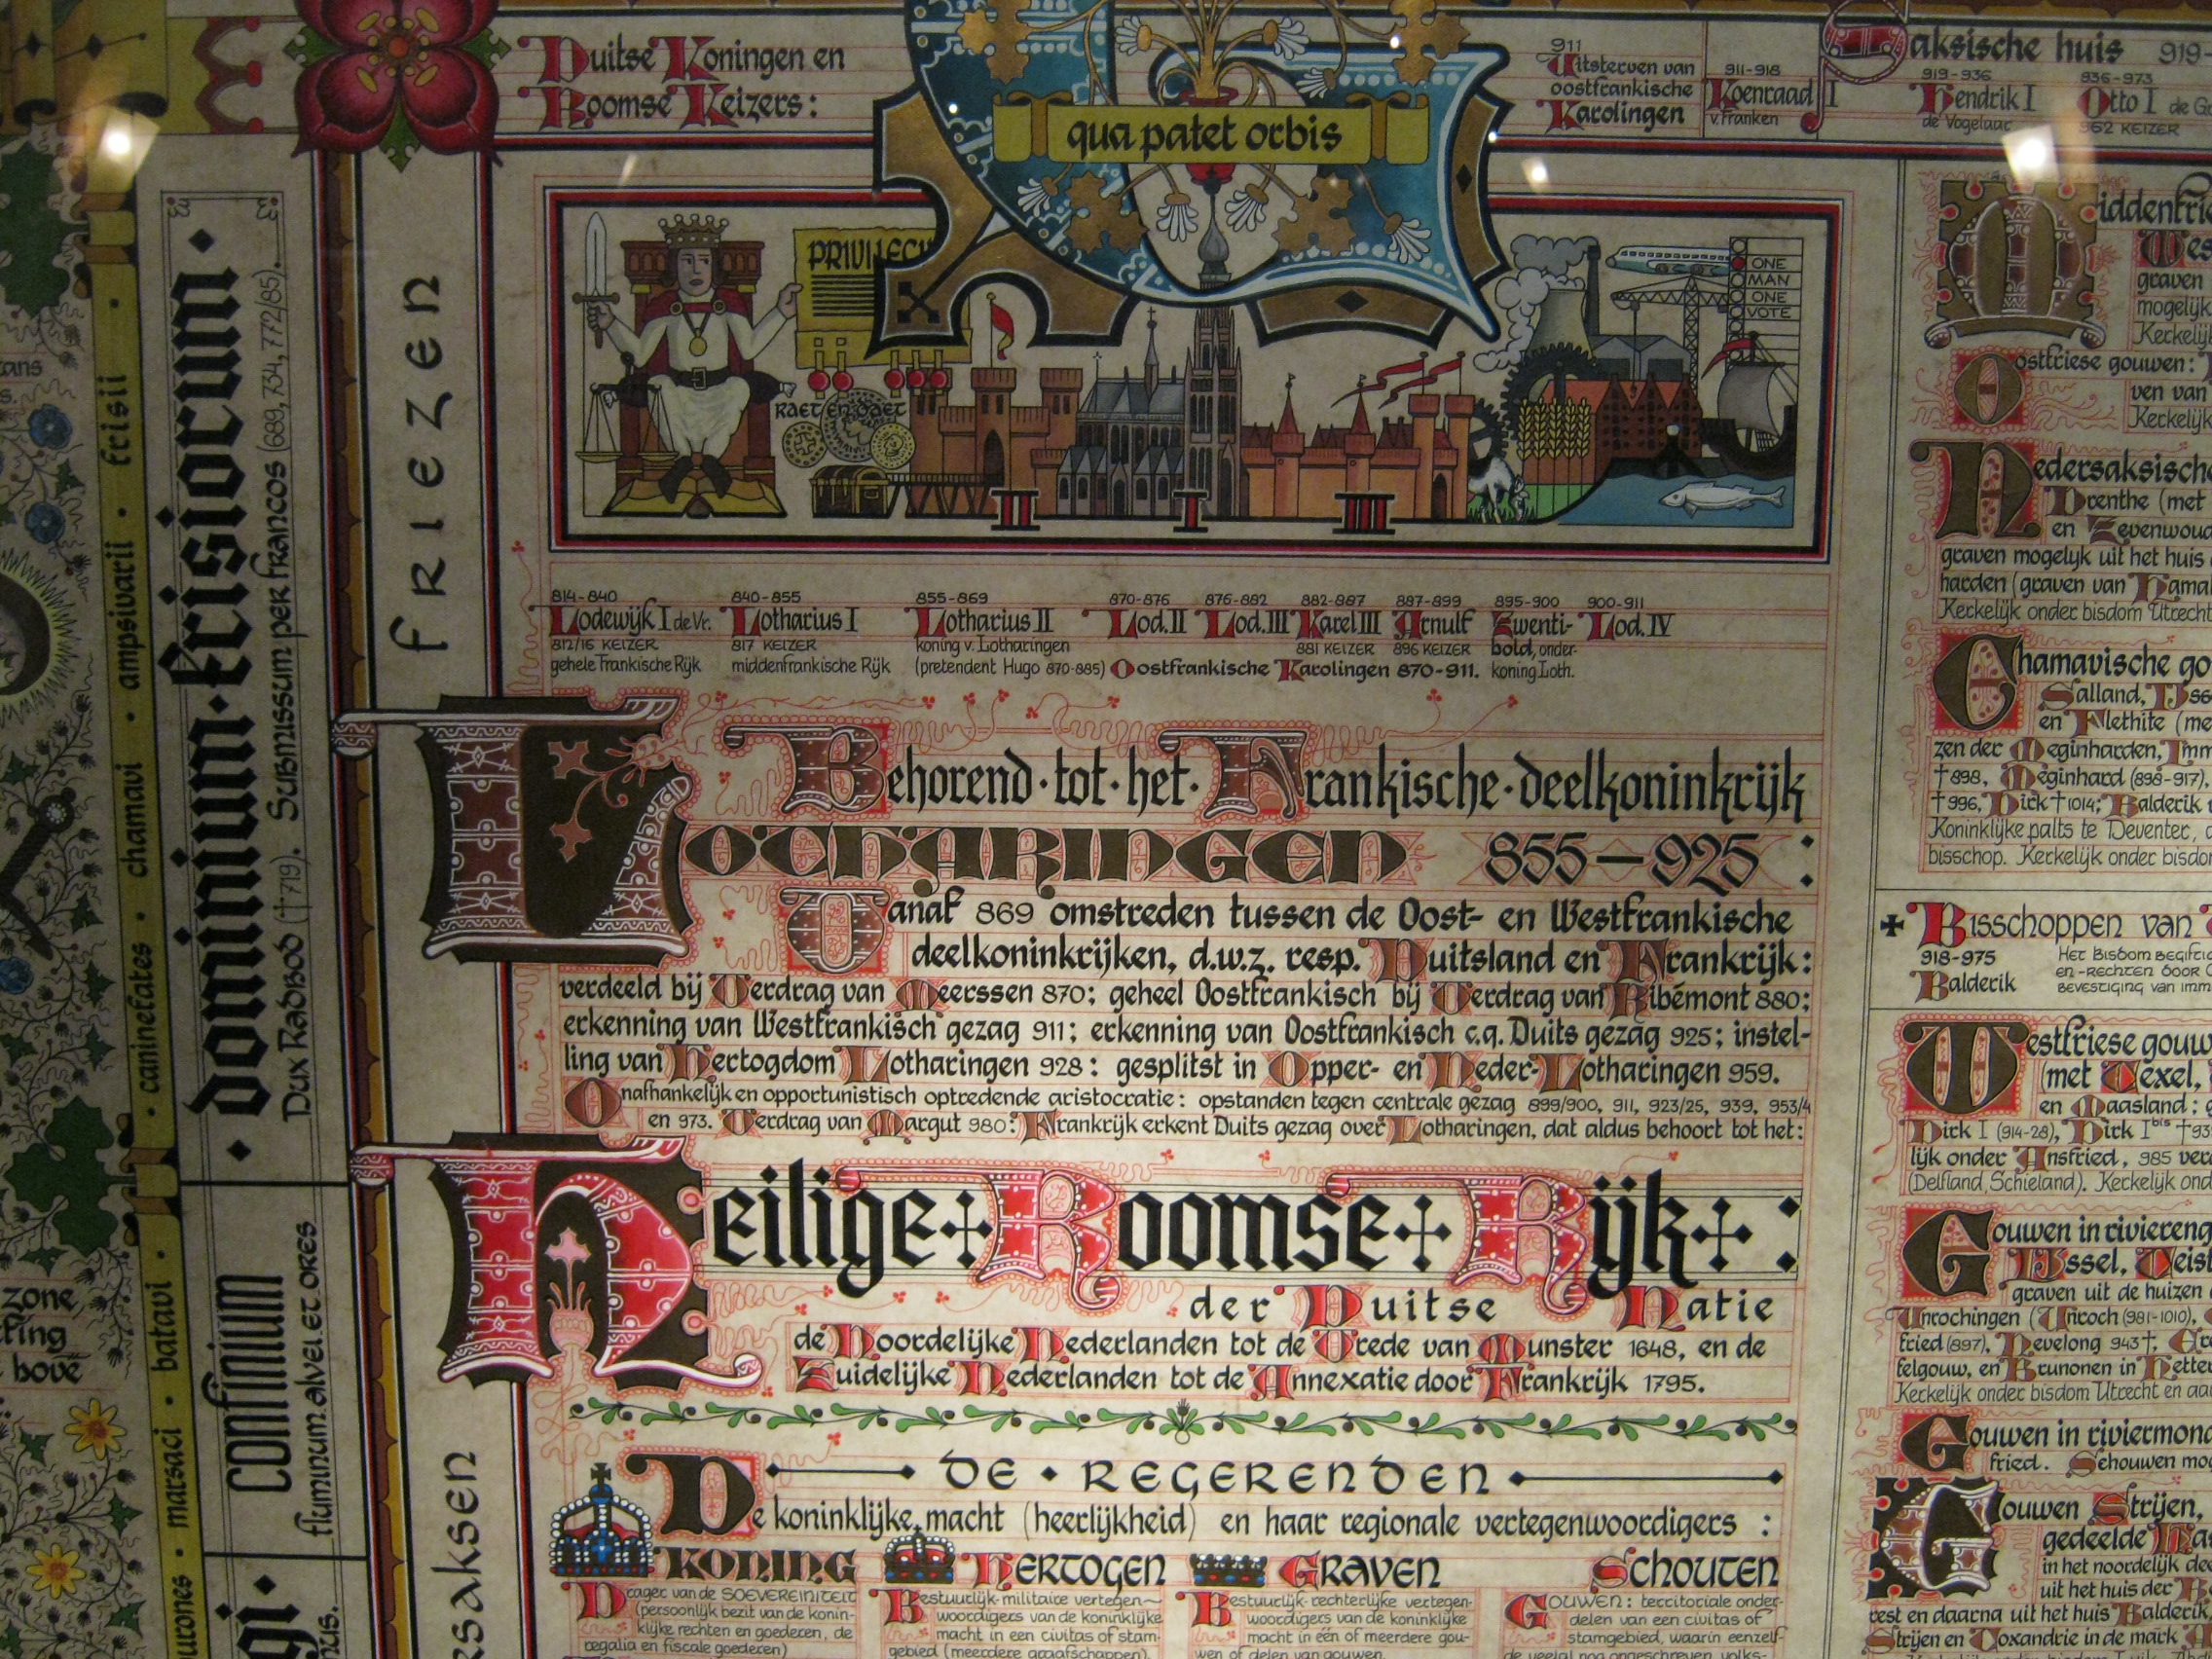 Duitse Koningen en
Roomse Keizers:
qua patet orbis
911
Uitsterven van
oostfrankische
Karolingen
911-918
Koenraad I
v. Franken
Saksische huis 919-
919-936
Hendrik I
de Vogelaar
936-973
Otto I de
962 KEIZER
PRIVILEGI
RAET EN DAET
ONE
MAN
ONE
VOTE
II I III
814-840
Lodewijk I de Vr.
812/16 KEIZER
gehele Frankische Rijk
840-855
Lotharius I
817 KEIZER
middenfrankische Rijk
855-869
Lotharius II
koning v. Lotharingen
(pretendent Hugo 870-885)
870-876
Lod. II
876-882
Lod. III
882-887
Karel III
881 KEIZER
887-899
Arnulf
896 KEIZER
895-900
Zwenti-
bold, onder-
koning Loth.
900-911
Lod. IV
Oostfrankische Karolingen 870-911.
Behorend·tot·het·Frankische·deelkoninkrijk
LOTHARINGEN 855-925:
Vanaf 869 omstreden tussen de Oost- en Westfrankische
deelkoninkrijken, d.w.z. resp. Duitsland en Frankrijk:
verdeeld bij Verdrag van Meerssen 870; geheel Oostfrankisch bij Verdrag van Ribémont 880;
erkenning van Westfrankisch gezag 911; erkenning van Oostfrankisch c.q. Duits gezag 925; instel-
ling van Hertogdom Lotharingen 928: gesplitst in Opper- en Neder-Lotharingen 959.
Onafhankelijk en opportunistisch optredende aristocratie: opstanden tegen centrale gezag 899/900, 911, 923/25, 939, 953/4
en 973. Verdrag van Margut 980: Frankrijk erkent Duits gezag over Lotharingen, dat aldus behoort tot het:
Heilige+Roomse+Rijk+:
der Duitse Natie
de Noordelijke Nederlanden tot de Vrede van Munster 1648, en de
Zuidelijke Nederlanden tot de Annexatie door Frankrijk 1795.
DE • REGERENDEN
De koninklijke macht (heerlijkheid) en haar regionale vertegenwoordigers :
KONING
Drager van de SOEVEREINITEIT
(persoonlijk bezit van de konin-
klijke rechten en goederen, de
regalia en fiscale goederen)
HERTOGEN
Bestuurlijk-militaire vertegen-
woordigers van de koninklijke
macht in een civitas of stam-
gebied (meerdere graafschappen).
GRAVEN
Bestuurlijk-rechterlijke vertegen-
woordigers van de koninklijke
macht in één of meerdere gou-
wen of delen van gouwen.
SCHOUTEN
GOUWEN: territoriale onder-
delen van een civitas of
stamgebied, waarin eenzelf-
de veelal nog ongeschreven volks-
Middenfrie
Wes
graven
mogelijk
Kerkelijk
Oostfriese gouwen:
ven van
Kerkelijk
Nedersaksische
Drenthe (met
en Zevenwoud
graven mogelijk uit het huis
harden (graven van Hama
Kerkelijk onder bisdom Utrecht
Chamavische go
Salland, IJss
en Flethite (me
zen der Meginharden, Imm
†898, Meginhard (898-917),
†996, Dirk †1014; Balderik
Koninklijke palts te Deventer,
bisschop. Kerkelijk onder bisdo
Bisschoppen van
918-975
Balderik
Het Bisdom begifti
en -rechten door
bevestiging van imm
Westfriese gouw
(met Texel,
en Maasland:
Dirk I (914-28), Dirk I bis †93
lijk onder Ansfried, 985 ver
(Delfland, Schieland). Kerkelijk ond
Gouwen in riviereng
IJssel, Teist
graven uit de huizen
Unrochingen (Unroch (981-1010),
fried (897), Nevelong 943†;
felgouw, en Brunonen in Hetter
Kerkelijk onder bisdom Utrecht en aa
Gouwen in riviermond
fried. Schouwen mog
Gouwen Strijen,
gedeelde
in het noordelijk dee
uit het huis der
rest en daarna uit het huis Balderik,
Strijen en Toxandrie in de mark
FRIEZEN
dominium·frisiorum·
Dux Radbod (†719). Submissum per francos (689, 734, 772/85).
confinium
fluminum. alvei. et ores
rsaksen
gi·
nus.
frisii
ampsivarii
chamavi
caninefates
batavi
marsaci
urones
zone,
fing
bove